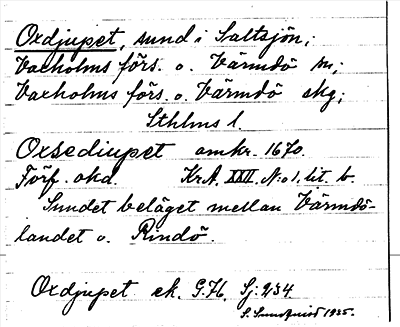 Oxdjupet, sund i Saltsjön;
Vaxholms förs. o. Värmdö sn;
Vaxholms förs. o. Värmdö skg;
Sthlms l.
Oxsediupet omkr. 1670.
Förf. okd. Kr.A. XXII, N:o 1, lit. b.
Sundet beläget mellan Värmdö-
landet o. Rindö.
Oxdjupet ek. G.K. Sj: 234
S. Sundquist 1935.